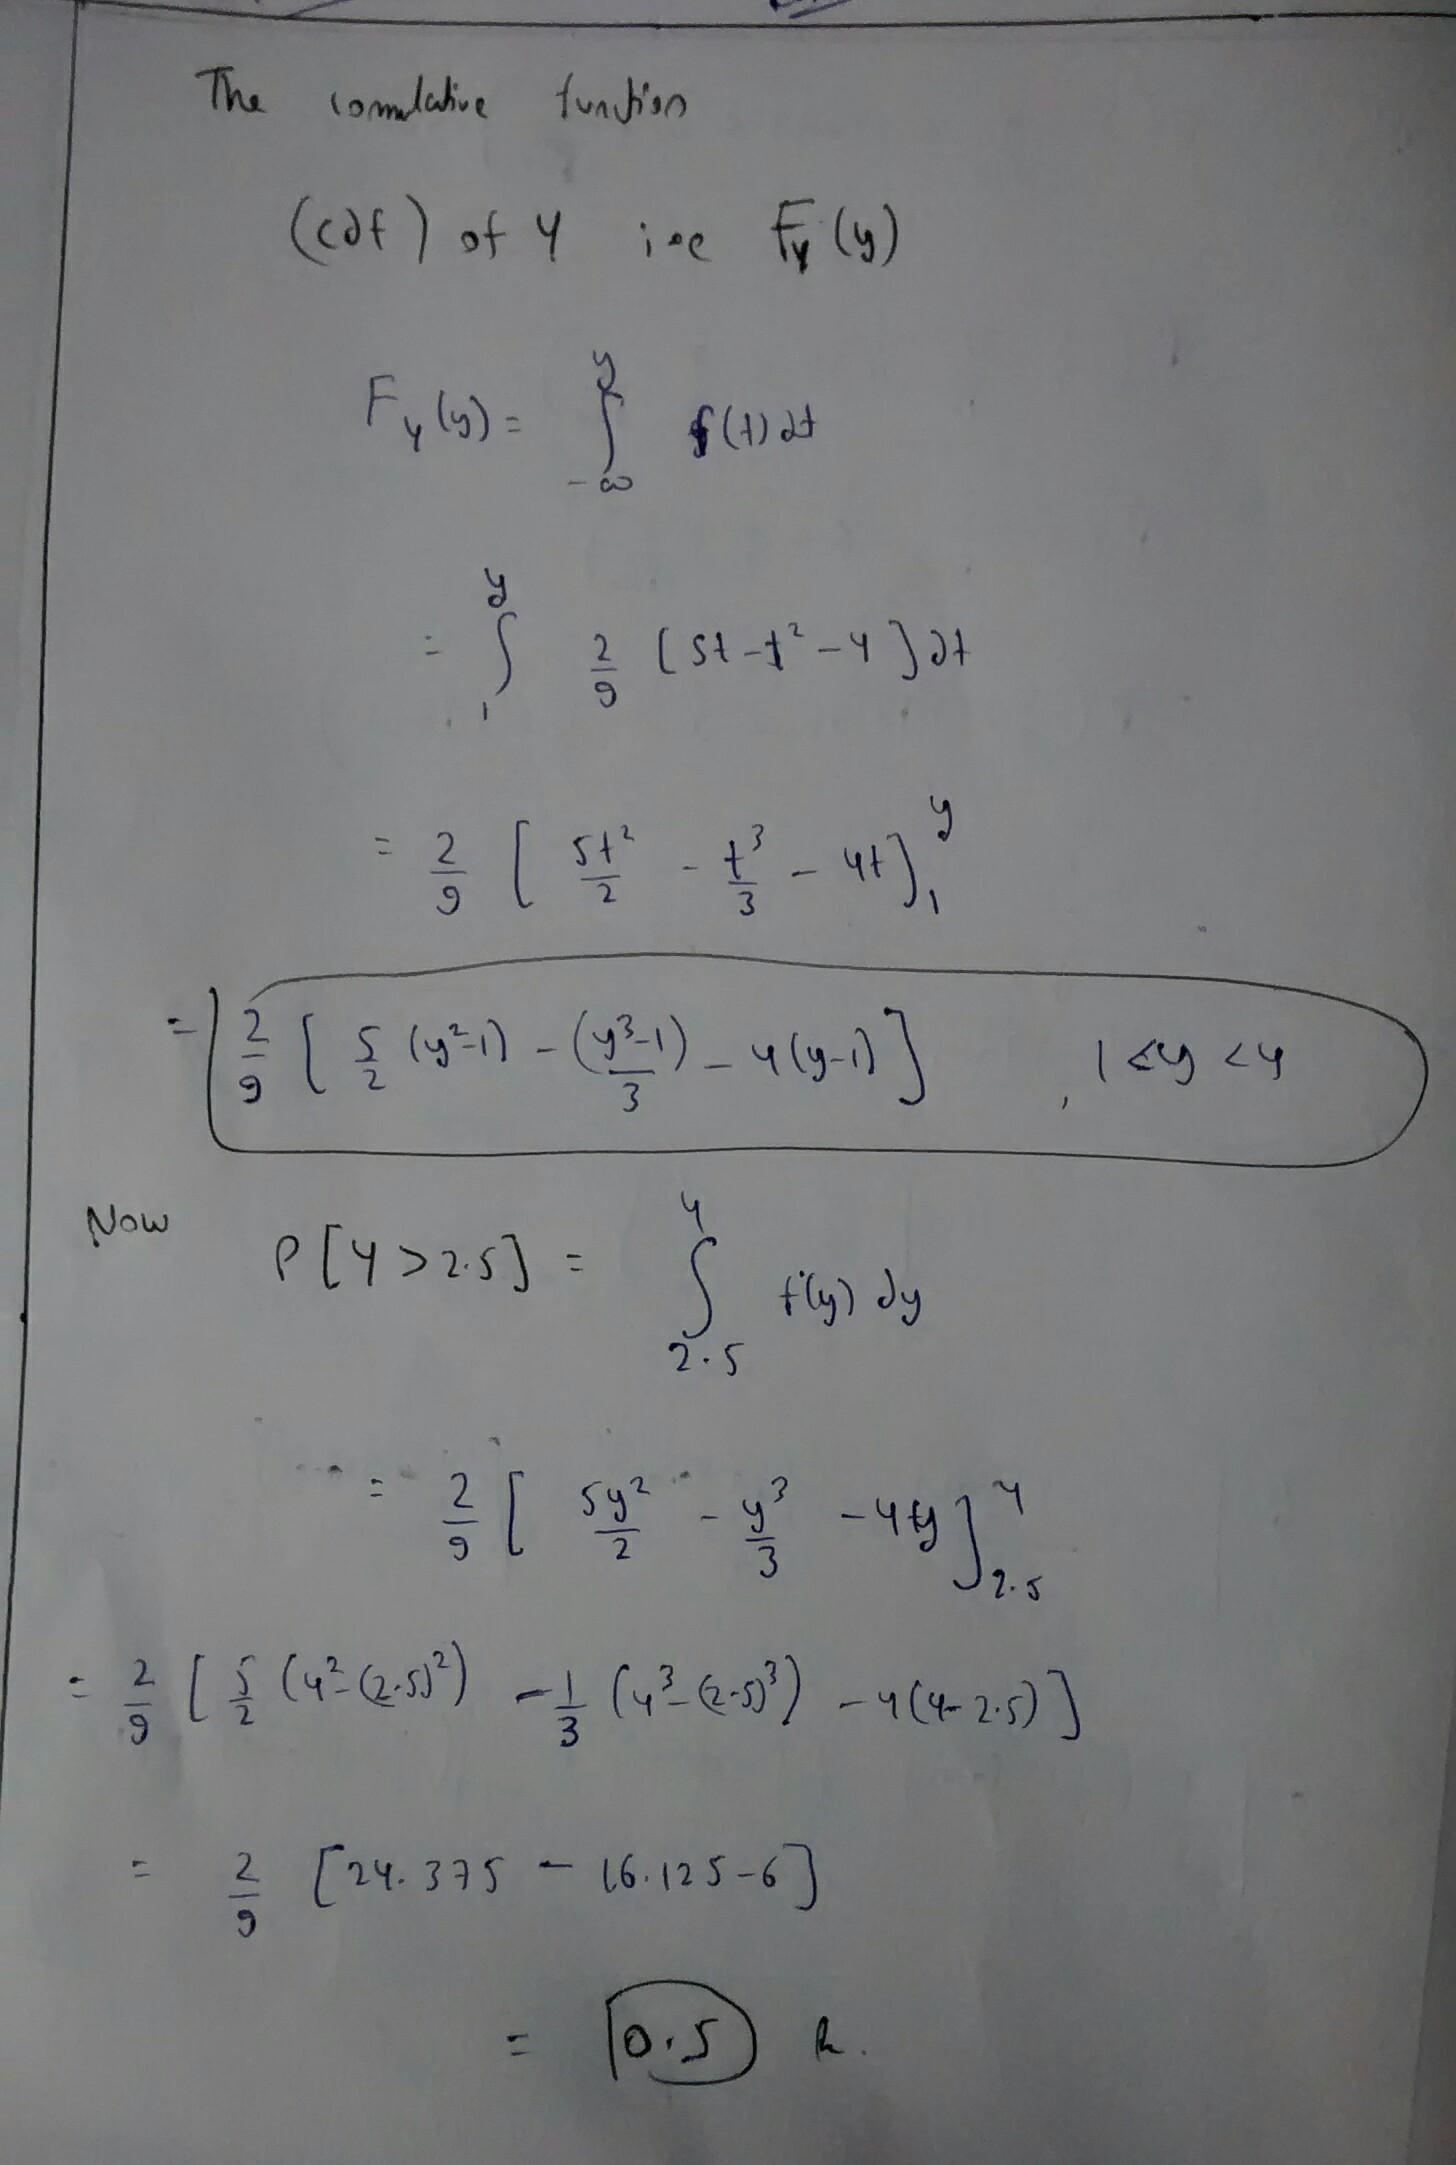 The comulative function
(cdf) of Y i.e F_Y(y)
F_Y(y) = ∫_{-∞}^{y} f(t) dt
= ∫_{1}^{y} 2/9 [5t - t² - 4] dt
= 2/9 [5t²/2 - t³/3 - 4t]_{1}^{y}
= 2/9 [5/2 (y²-1) - (y³-1)/3 - 4(y-1)] , 1<y<4
Now P[Y>2.5] = ∫_{2.5}^{4} f(y) dy
= 2/9 [5y²/2 - y³/3 - 4y]_{2.5}^{4}
= 2/9 [5/2 (4²-(2.5)²) - 1/3 (4³-(2.5)³) - 4(4-2.5)]
= 2/9 [24.375 - 16.125-6]
= 0.5